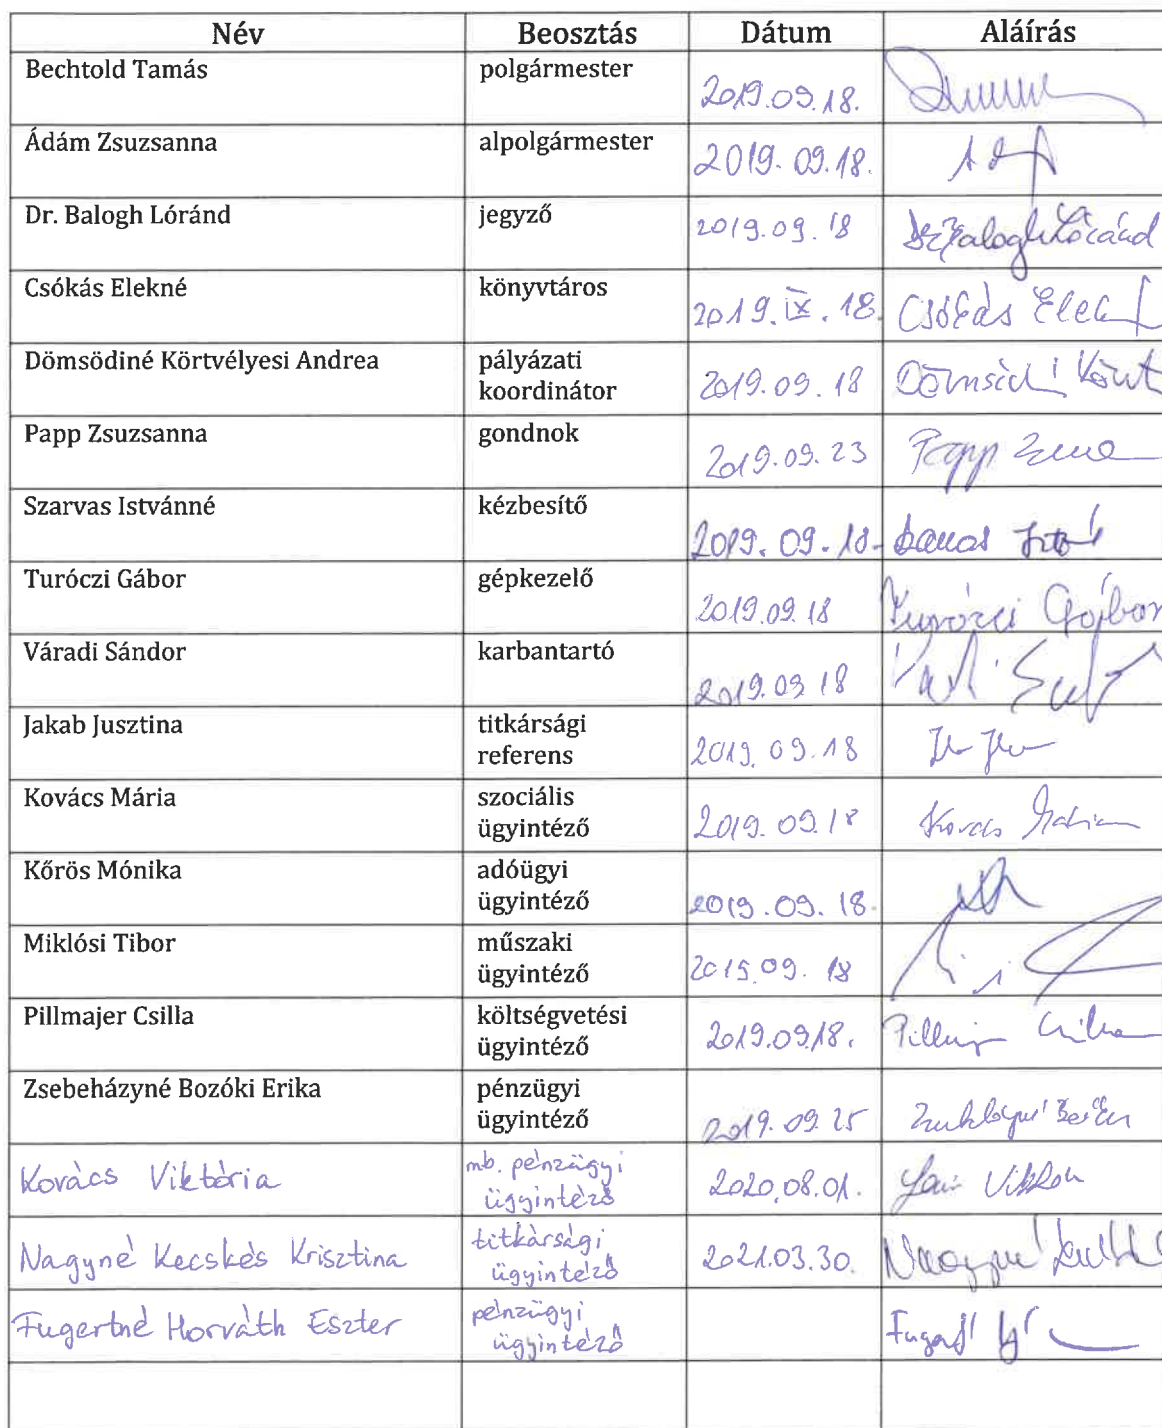 Név Beosztás Dátum Aláírás
Bechtold Tamás polgármester 2019.09.18.
Ádám Zsuzsanna alpolgármester 2019.09.18.
Dr. Balogh Lóránd jegyző 2019.09.18 Dr. Balogh Lóránd
Csókás Elekné könyvtáros 2019.IX.18. Csókás Elek
Dömsödiné Körtvélyesi Andrea pályázati
koordinátor 2019.09.18
Papp Zsuzsanna gondnok 2019.09.23 Papp
Szarvas Istvánné kézbesítő 2019.09.18.
Turóczi Gábor gépkezelő 2019.09.18 Turóczi Gábor
Váradi Sándor karbantartó 2019.09.18
Jakab Jusztina titkársági
referens 2019.09.18
Kovács Mária szociális
ügyintéző 2019.09.18 Kovács Mária
Kőrös Mónika adóügyi
ügyintéző 2019.09.18.
Miklósi Tibor műszaki
ügyintéző 2019.09.18
Pillmajer Csilla költségvetési
ügyintéző 2019.09.18. Csilla
Zsebeházyné Bozóki Erika pénzügyi
ügyintéző 2019.09.25
Kovács Viktória mb. pénzügyi
ügyintéző 2020.08.01.
Nagyné Kecskés Krisztina titkársági
ügyintéző 2021.03.30. Nagyné
Fugertné Horváth Eszter pénzügyi
ügyintéző